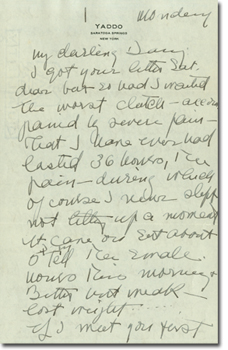 1 Monday
YADDO
SARATOGA SPRINGS
NEW YORK
My darling
I got your letter Sat.
dear but so had I wanted
the worst
by severe pain
that I have ever had
lasted 36 hours, the
pain - during which
of course I never slept
not up a moment
It came on Sat about
6 the small
hours this morning
Better but weak -
lost weight
If I meet you first